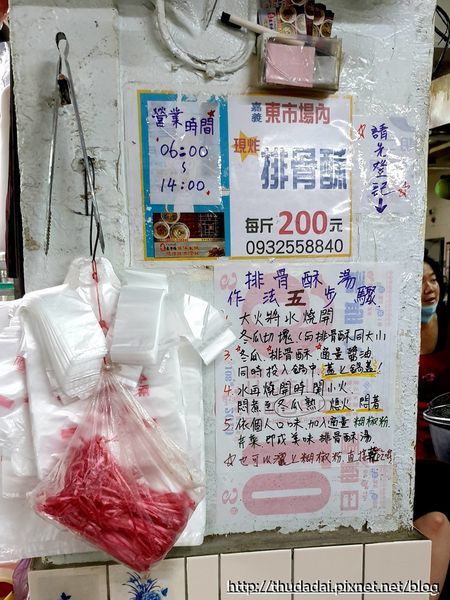 營業時間
06:00
~
14:00
嘉義 東市場內
現炸
排骨酥
每斤200元
0932558840
請先登記
排骨酥湯
作法五步驟
1. 大火將水燒開
冬瓜切塊(与排骨酥同大小
3. 冬瓜、排骨酥、適量醬油
同時投入鍋中,蓋上鍋蓋!
4. 水再燒開時,開小火
悶煮至(冬瓜熟)熄火,悶著
5. 依個人口味,加入適量胡椒粉
芹菜 即成美味排骨酥湯
也可以灑上胡椒粉直接
http://thudadai.pixnet.net/blog